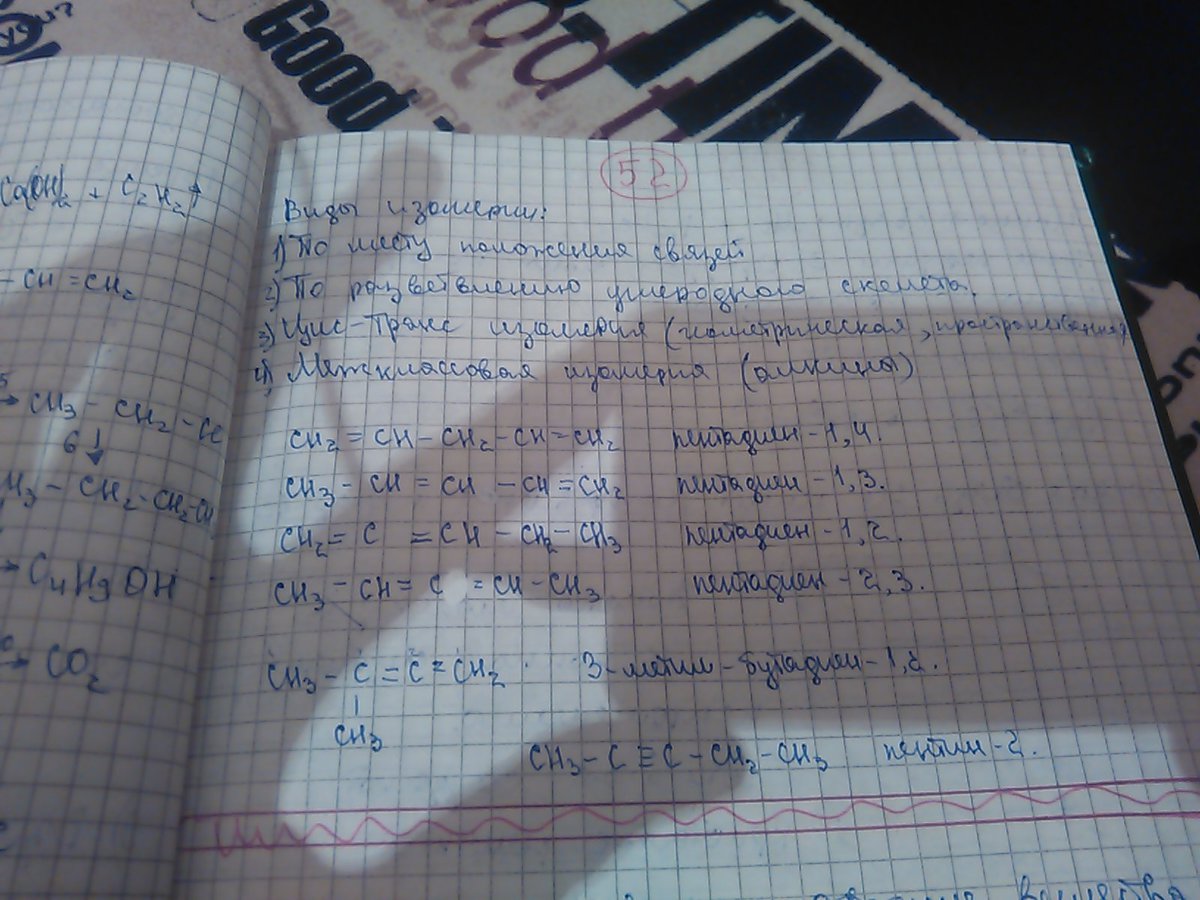 GOOD
Ca(OH)2 + C2H2↑
- CH = CH2
→ CH3 - CH2 -
6↓
- CH2 - CH2 -
→ C4H9OH
→ CO2
52
Виды изомерии:
1) По месту положения связей
2) По разветвлению углеродного скелета.
3) Цис-Транс изомерия (геометрическая, пространственная
4) Межклассовая изомерия (алкины)
CH2 = CH - CH2 - CH = CH2 пентадиен - 1,4.
CH3 - CH = CH - CH = CH2 пентадиен - 1,3.
CH2 = C = CH - CH2 - CH3 пентадиен - 1,2.
CH3 - CH = C = CH - CH3 пентадиен - 2,3.
CH3 - C = C = CH2 3-метил-бутадиен-1,2.
|
CH3
CH3 - C ≡ C - CH2 - CH3 пентин - 2.
вещества